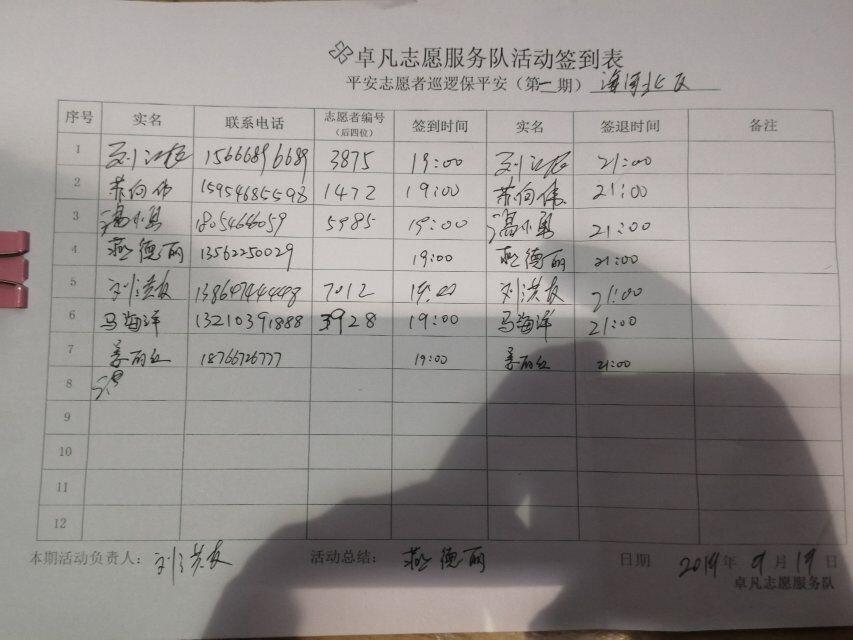 卓凡志愿服务队活动签到表
平安志愿者巡逻保平安（第一期） 海河北区
序号 实名 联系电话 志愿者编号（后四位） 签到时间 实名 签退时间 备注
1 刘 15666896689 3875 19:00 刘 21:00
2 苏向伟 15954685598 1472 19:00 苏向伟 21:00
3 冯小勇 1805466059 5985 19:00 冯小勇 21:00
4 燕德丽 13562250029 19:00 燕德丽 21:00
5 刘洪友 7012 19:00 刘洪友 21:00
6 马海洋 13210391888 3928 19:00 马海洋 21:00
7 姜丽红 18766726777 19:00 姜丽红 21:00
8
9
10
11
12
本期活动负责人：刘洪友 活动总结：燕德丽 日期 2019年9月19日
卓凡志愿服务队